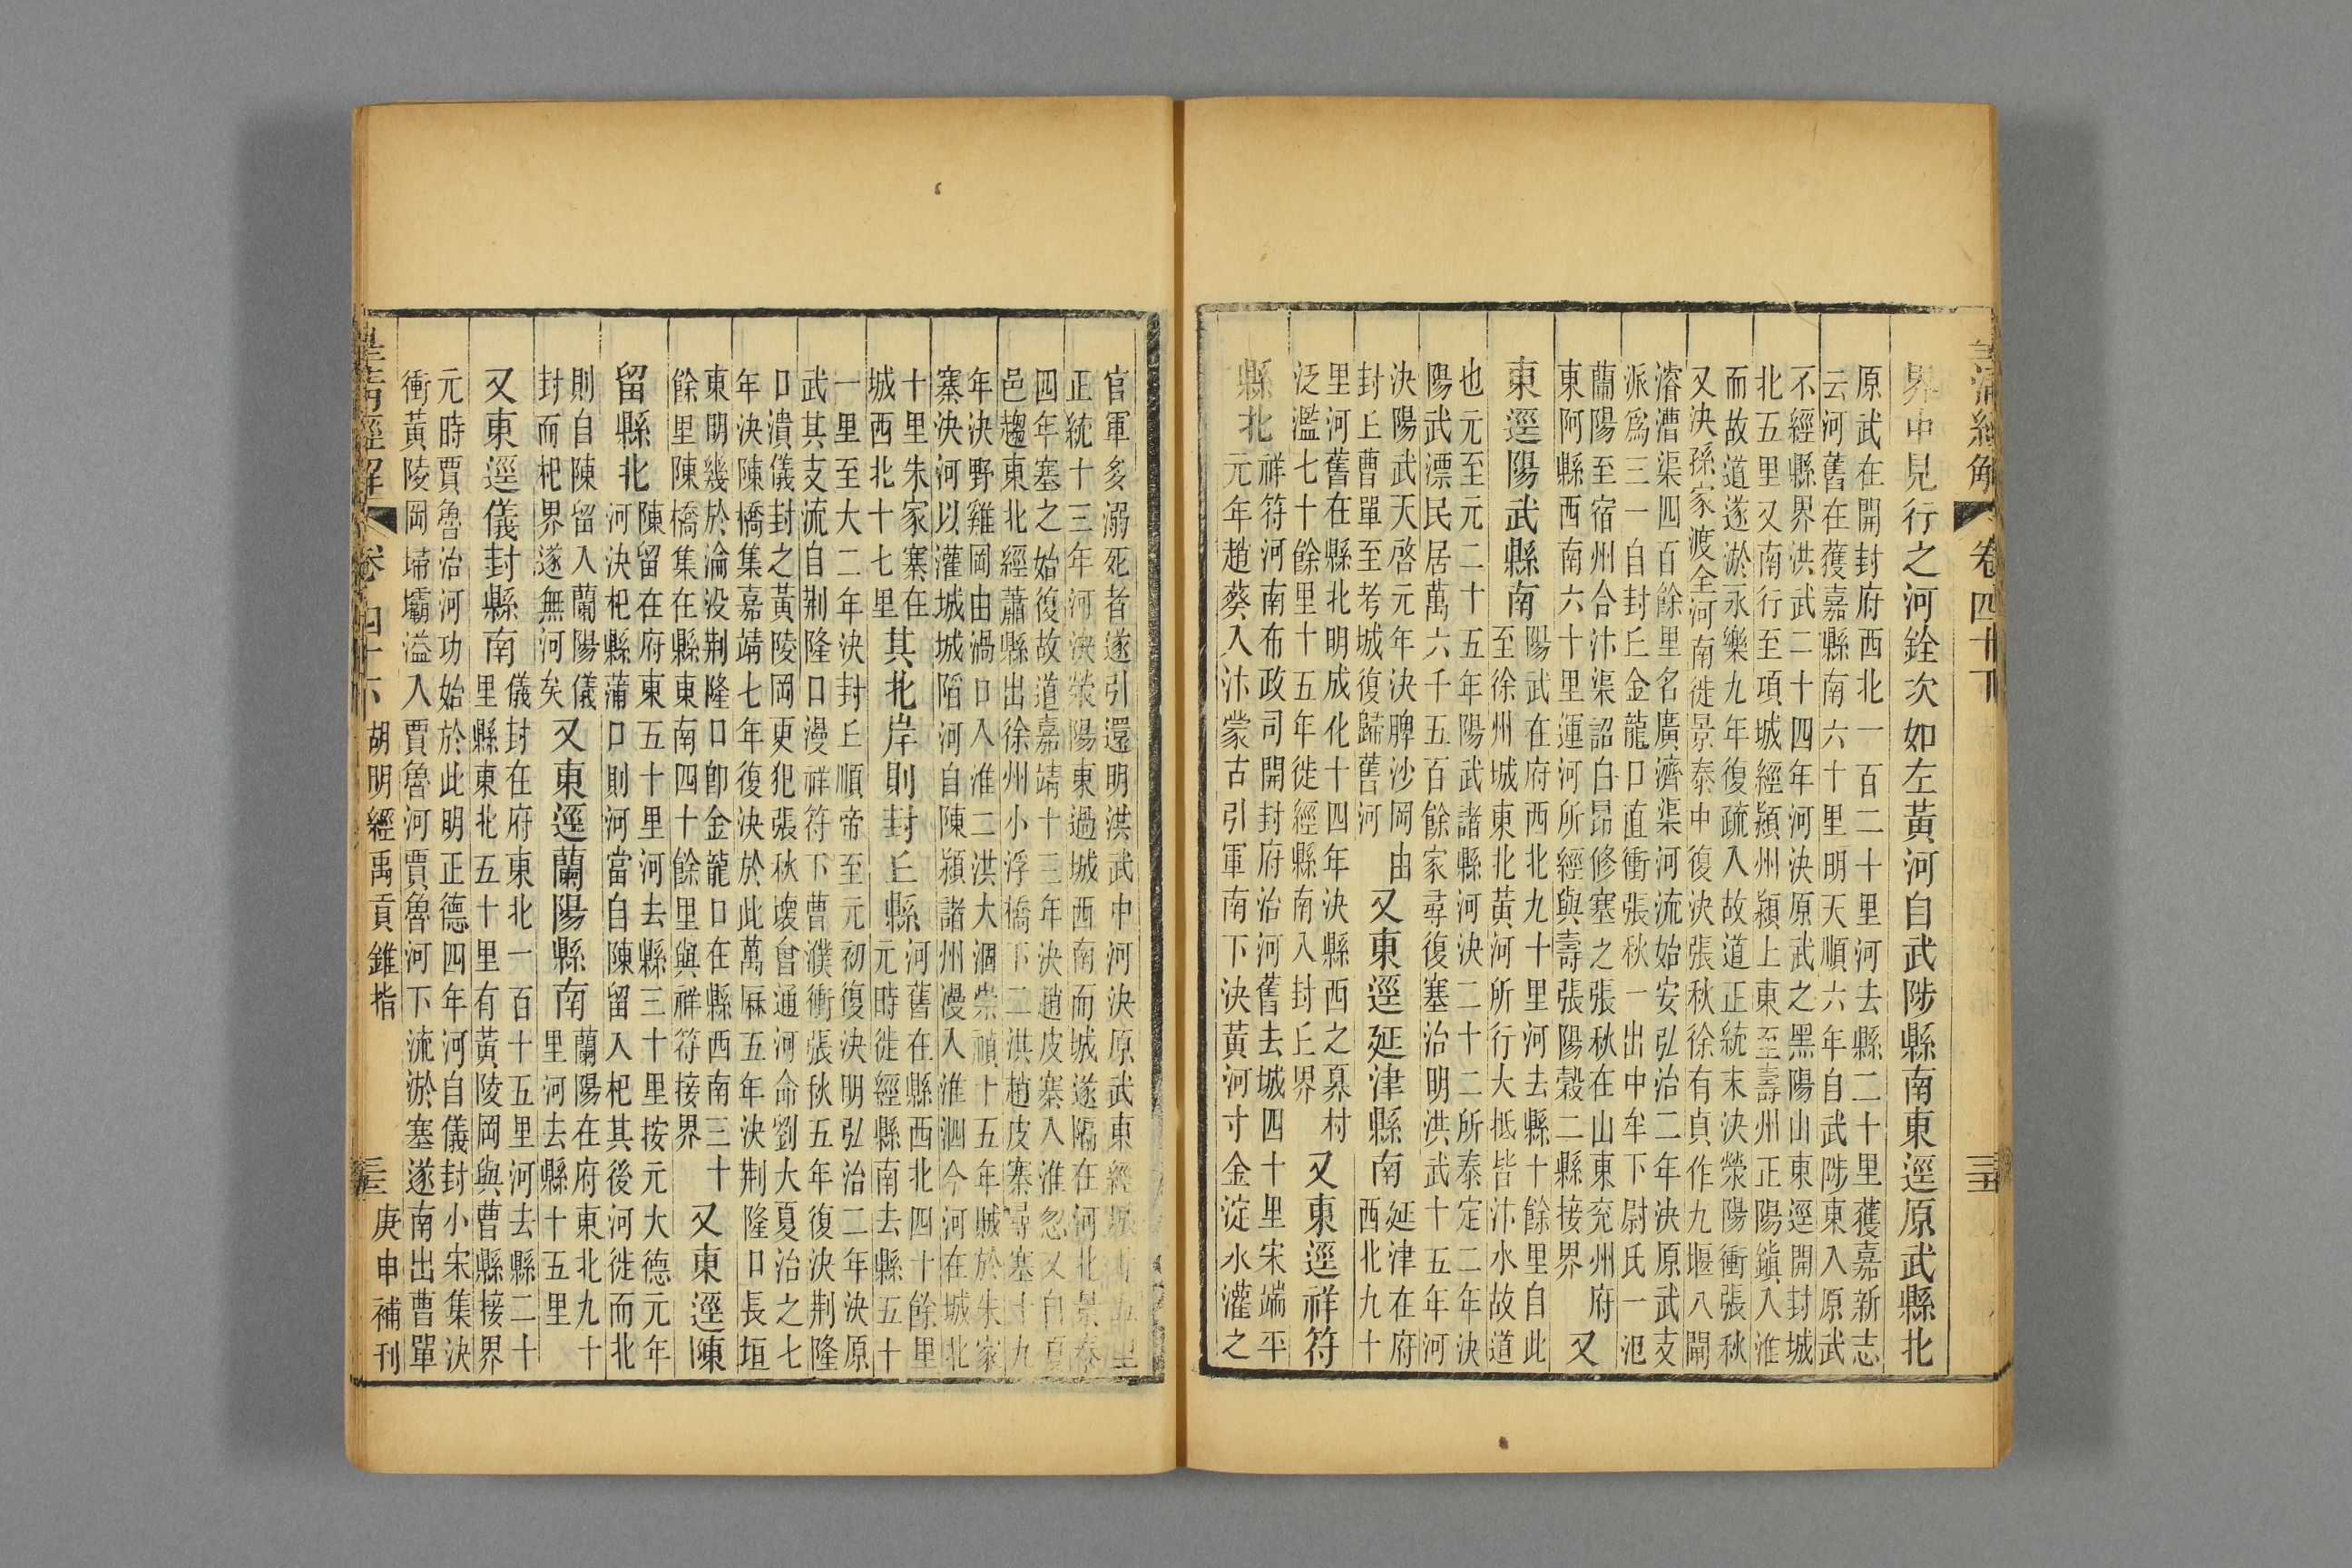 皇清經解 卷四十下 三五
界中見行之河銓次如左黃河自武陟縣南東逕原武縣北
原武在開封府西北一百二十里河去縣二十里獲嘉新志
云河舊在獲嘉縣南六十里明天順六年自武陟東入原武
不經縣界洪武二十四年河決原武之黑陽山東逕開封城
北五里又南行至項城經潁州潁上東至壽州正陽鎮入淮
而故道遂淤永樂九年復疏入故道正統末決滎陽衝張秋
又決孫家渡全河南徙景泰中復決張秋徐有貞作九堰八閘
濬漕渠四百餘里名廣濟渠河流始安弘治二年決原武支
派爲三一自封丘金龍口直衝張秋一出中牟下尉氏一氾
蘭陽至宿州合汴渠詔白昂修塞之張秋在山東兖州府
東阿縣西南六十里運河所經與壽張陽榖二縣接界 又
東逕陽武縣南
陽武在府西北九十里河去縣十餘里自此
至徐州城東北黃河所行大抵皆汴水故道
也元至元二十五年陽武諸縣河決二十二所泰定二年決
陽武漂民居萬六千五百餘家尋復塞治明洪武十五年河
決陽武天啓元年決脾沙岡由
封丘曹單至考城復歸舊河
又東逕延津縣南
延津在府
西北九十
里河舊在縣北明成化十四年決縣西之村
泛濫七十餘里十五年徙經縣南入封丘界
又東逕祥符
縣北
祥符河南布政司開封府治河舊去城四十里宋端平
元年趙葵入汴蒙古引軍南下決黃河寸金淀水灌之
官軍多溺死者遂引還明洪武中河決原武東經
正統十三年河決滎陽東過城西南而城遂隔在河北景泰
四年塞之始復故道嘉靖十三年決趙皮寨入淮忽又自夏
邑趨東北經蕭縣出徐州小浮橋下二洪趙皮寨尋塞十九
年決野雞岡由渦口入淮二洪大涸崇禎十五年賊於朱家
寨決河以灌城城陷河自陳潁諸州漫入淮泗今河在城北
十里朱家寨在
城西北十七里
其北岸則封丘縣
河舊在縣西北四十餘里
元時徙經縣南去縣五十
一里至大二年決封丘順帝至元初復決明弘治二年決原
武其支流自荆隆口漫祥符下曹濮衝張秋五年復決荆隆
口潰儀封之黃陵岡更犯張秋壞會通河命劉大夏治之七
年決陳橋集嘉靖七年復決於此萬厤五年決荆隆口長垣
東明幾於淪没荆隆口卽金龍口在縣西南三十
餘里陳橋集在縣東南四十餘里與祥符接界
又東逕陳
留縣北
陳留在府東五十里河去縣三十里按元大德元年
河決杞縣蒲口則河當自陳留入杞其後河徙而北
則自陳留入蘭陽儀
封而杞界遂無河矣
又東逕蘭陽縣南
蘭陽在府東北九十
里河去縣十五里
又東逕儀封縣南
儀封在府東北一百十五里河去縣二十
里縣東北五十里有黃陵岡與曹縣接界
元時賈魯治河功始於此明正德四年河自儀封小宋集決
衝黃陵岡埽壩溢入賈魯河賈魯河下流淤塞遂南出曹單
皇清經解 卷四十下 胡明經禹貢錐指 三五 庚申補刊